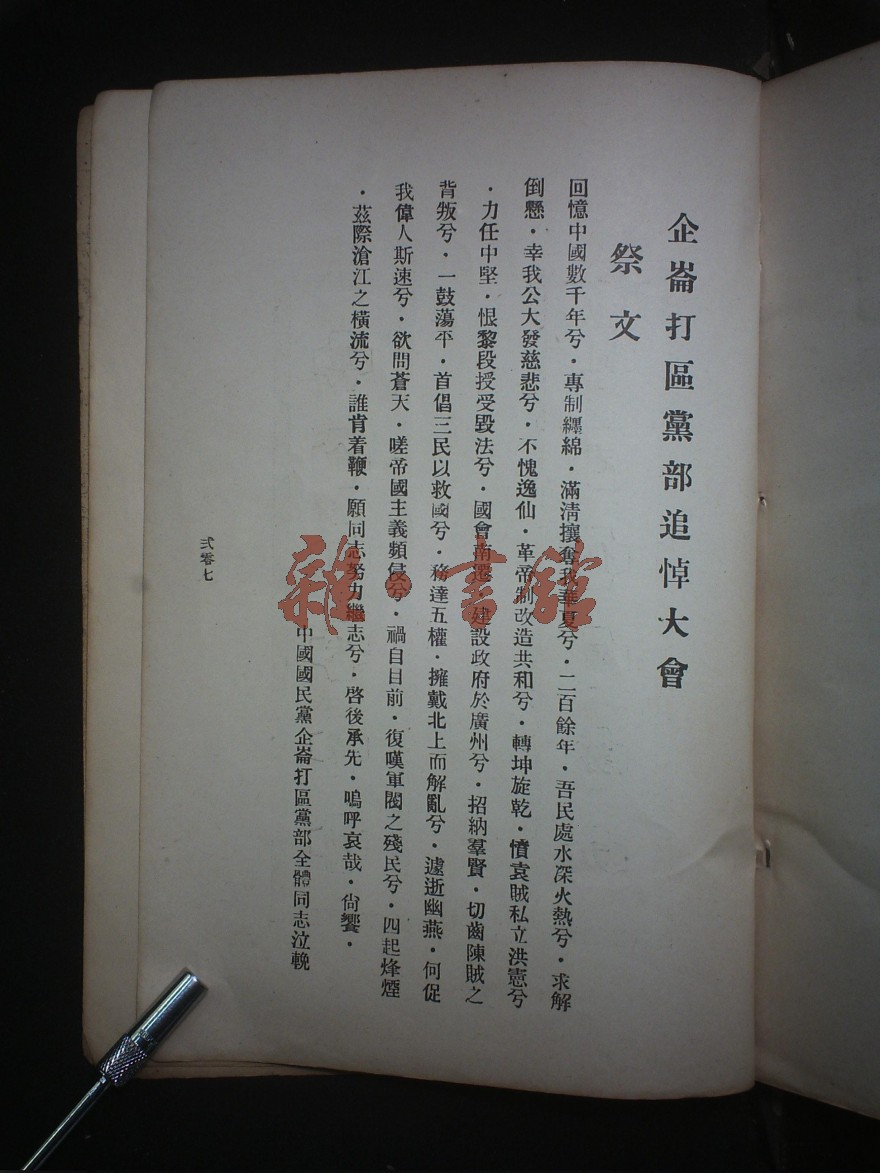 企崙打區黨部追悼大會
祭文
回憶中國數千年兮・專制纒綿・滿清攘奪我華夏兮・二百餘年・吾民處水深火熱兮・求解
倒懸・幸我公大發慈悲兮・不愧逸仙・革帝制改造共和兮・轉坤旋乾・憤袁賊私立洪憲兮
・力任中堅・恨黎段授受毀法兮・國會南遷・建設政府於廣州兮・招納羣賢・切齒陳賊之
背叛兮・一鼓蕩平・首倡三民以救國兮・務達五權・擁戴北上而解亂兮・遽逝幽燕・何促
我偉人斯速兮・欲問蒼天・嗟帝國主義頻侵兮・禍自目前・復嘆軍閥之殘民兮・四起烽煙
・茲際滄江之橫流兮・誰肯着鞭・願同志努力繼志兮・啓後承先・嗚呼哀哉・尙饗・
中國國民黨企崙打區黨部全體同志泣輓
弍零七
雜・書館